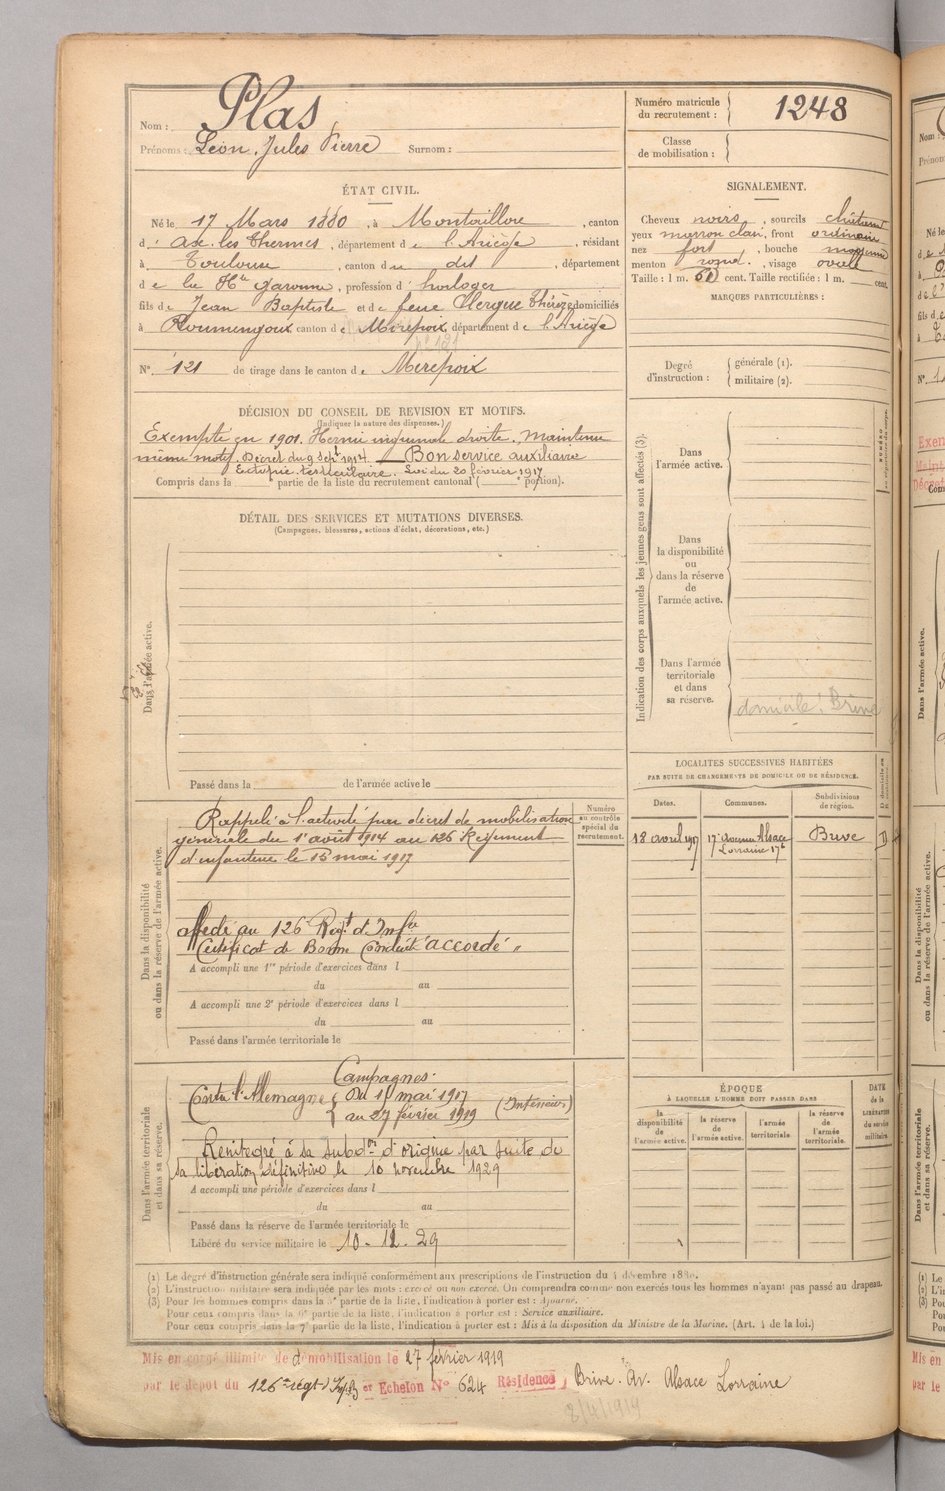 Nom : Plas
Prénoms : Léon Jules Pierre Surnom :
Numéro matricule du recrutement : 1248
Classe de mobilisation :
ÉTAT CIVIL.
Né le 17 Mars 1880, à Montaillou, canton
d' Ax-les-Thermes, département de l'Ariège, résidant
à Toulouse, canton du dit, département
de la Hte Garonne, profession d' horloger
fils de Jean Baptiste et de feue Clergue Thérèze domiciliés
à Roumengoux canton de Mirepoix département de l'Ariège
N° 121 de tirage dans le canton de Mirepoix
SIGNALEMENT.
Cheveux noirs, sourcils châtains
yeux marron clair, front ordinaire
nez fort, bouche moyenne
menton rond, visage ovale
Taille : 1 m. 60 cent. Taille rectifiée : 1 m. cent.
MARQUES PARTICULIÈRES :
Degré d'instruction : générale (1).
militaire (2).
DÉCISION DU CONSEIL DE REVISION ET MOTIFS.
(Indiquer la nature des dispenses.)
Exempté en 1901. Hernie inguinale droite. Maintenu
même motif. Décret du 9 Sept 1914. Bon service auxiliaire
Ectopie testiculaire. Loi du 20 février 1917
Compris dans la partie de la liste du recrutement cantonal ( portion).
DÉTAIL DES SERVICES ET MUTATIONS DIVERSES.
(Campagnes, blessures, actions d'éclat, décorations, etc.)
Dans l'armée active.
Passé dans la de l'armée active le
Indication des corps auxquels les jeunes gens sont affectés (3).
Dans l'armée active.
Dans la disponibilité ou dans la réserve de l'armée active.
Dans l'armée territoriale et dans sa réserve.
domicile : Brive
LOCALITÉS SUCCESSIVES HABITÉES
PAR SUITE DE CHANGEMENTS DE DOMICILE OU DE RÉSIDENCE.
Dates. Communes. Subdivisions de région.
18 avril 1917 17 avenue Alsace Lorraine 17 Brive D
Dans la disponibilité ou dans la réserve de l'armée active.
Numéro au contrôle spécial du recrutement.
Rappelé à l'activité par décret de mobilisation
générale du 1er août 1914 au 126 Régiment
d'infanterie le 15 mai 1917
Affecté au 126e Régt d'Infie
Certificat de Bonne Conduite "accordé"
A accompli une 1re période d'exercices dans l
du au
A accompli une 2e période d'exercices dans l
du au
Passé dans l'armée territoriale le
Dans l'armée territoriale et dans sa réserve.
Campagnes.
Contre l'Allemagne du 15 mai 1917
au 27 février 1919 (Intérieur)
Réintégré à sa subdon d'origine par suite de
sa libération définitive le 10 novembre 1929
A accompli une période d'exercices dans l
du au
Passé dans la réserve de l'armée territoriale le
Libéré du service militaire le 10-12-29
ÉPOQUE
À LAQUELLE L'HOMME DOIT PASSER DANS
la disponibilité de l'armée active.
la réserve de l'armée active.
l'armée territoriale.
la réserve de l'armée territoriale.
DATE de la LIBÉRATION du service militaire.
(1) Le degré d'instruction générale sera indiqué conformément aux prescriptions de l'instruction du 4 décembre 1889.
(2) L'instruction militaire sera indiquée par les mots : exercé ou non exercé. On comprendra comme non exercés tous les hommes n'ayant pas passé au drapeau.
(3) Pour les hommes compris dans la 5e partie de la liste, l'indication à porter est : Ajourné.
Pour ceux compris dans la 6e partie de la liste, l'indication à porter est : Service auxiliaire.
Pour ceux compris dans la 7e partie de la liste, l'indication à porter est : Mis à la disposition du Ministre de la Marine. (Art. 4 de la loi.)
Mis en congé illimité de démobilisation le 27 février 1919
par le dépôt du 126e régt d'Infie er Echelon N° 624 Résidence Brive. Av. Alsace Lorraine
8/4/1919